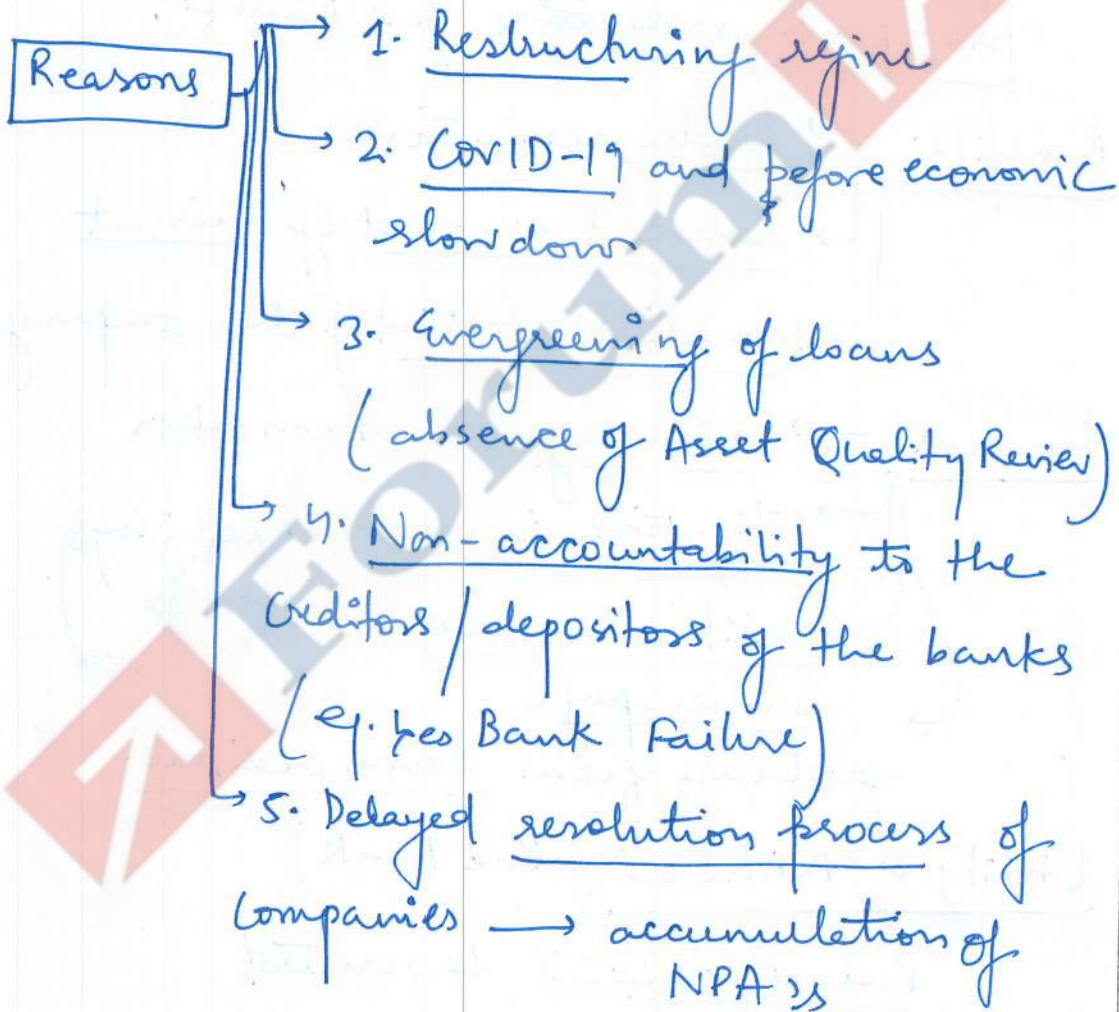 Reasons
1. Restructuring regime
2. COVID-19 and before economic
slowdown
3. Evergreening of loans
(absence of Asset Quality Review)
4. Non-accountability to the
Creditors / depositors of the banks
(eg. Yes Bank Failure)
5. Delayed resolution process of
Companies → accumulation of
NPAs
Forum